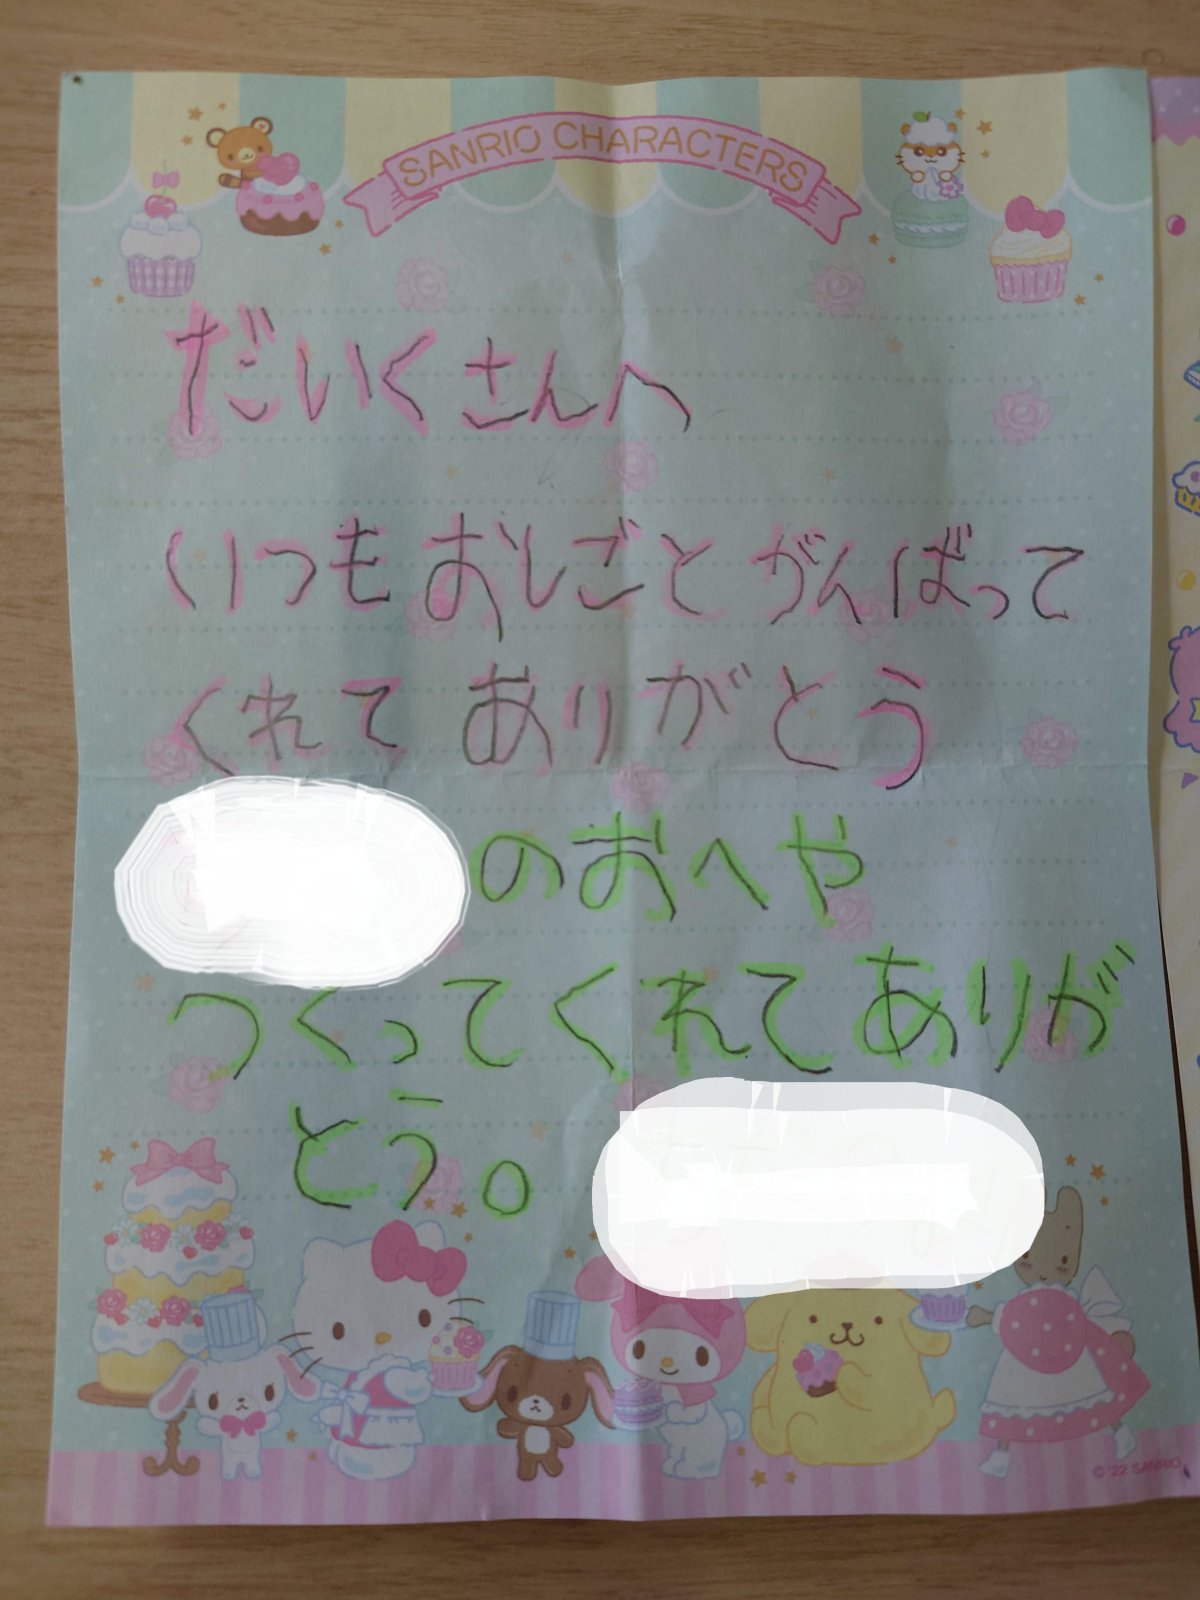 SANRIO CHARACTERS
だいくさんへ
いつもおしごとがんばって
くれてありがとう
のおへや
つくってくれてありが
とう。
© '22 SANRIO